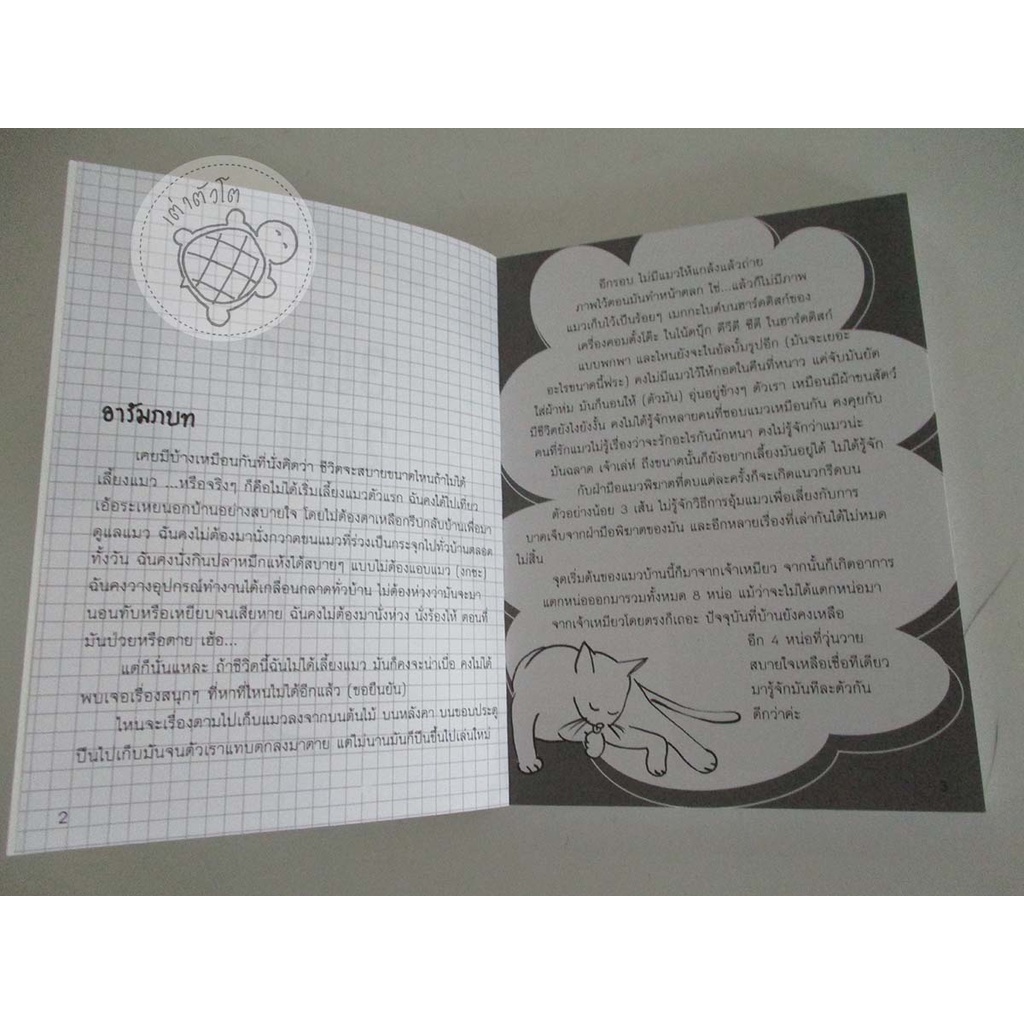 เต่าตัวโต
อารัมภบท
เคยมีบ้างเหมือนกันที่นั่งคิดว่า ชีวิตจะสบายขนาดไหนถ้าไม่ได้
เลี้ยงแมว ...หรือจริงๆ ก็คือไม่ได้เริ่มเลี้ยงแมวตัวแรก ฉันคงได้ไปเที่ยว
เอ้อระเหยนอกบ้านอย่างสบายใจ โดยไม่ต้องตาเหลือกรีบกลับบ้านเพื่อมา
ดูแลแมว ฉันคงไม่ต้องมานั่งกวาดขนแมวที่ร่วงเป็นกระจุกไปทั่วบ้านตลอด
ทั้งวัน ฉันคงนั่งกินปลาหมึกแห้งได้สบายๆ แบบไม่ต้องแอบแมว (งกซะ)
ฉันคงวางอุปกรณ์ทำงานได้เกลื่อนกลาดทั่วบ้าน ไม่ต้องห่วงว่ามันจะมา
นอนทับหรือเหยียบจนเสียหาย ฉันคงไม่ต้องมานั่งห่วง นั่งร้องไห้ ตอนที่
มันป่วยหรือตาย เฮ้อ...
แต่ก็นั่นแหละ ถ้าชีวิตนี้ฉันไม่ได้เลี้ยงแมว มันก็คงจะน่าเบื่อ คงไม่ได้
พบเจอเรื่องสนุกๆ ที่หาที่ไหนไม่ได้อีกแล้ว (ขอยืนยัน)
ไหนจะเรื่องตามไปเก็บแมวลงจากบนต้นไม้ บนหลังคา บนขอบประตู
ปีนไปเก็บมันจนตัวเราแทบตกลงมาตาย แต่ไม่นานมันก็ปีนขึ้นไปเล่นใหม่
2
อีกรอบ ไม่มีแมวให้แกล้งแล้วถ่าย
ภาพไว้ตอนมันทำหน้าตลก ใช่...แล้วก็ไม่มีภาพ
แมวเก็บไว้เป็นร้อยๆ เมกกะไบต์บนฮาร์ดดิสก์ของ
เครื่องคอมตั้งโต๊ะ ในโน้ตบุ๊ก ดีวีดี ซีดี ในฮาร์ดดิสก์
แบบพกพา และไหนยังจะในอัลบั้มรูปอีก (มันจะเยอะ
อะไรขนาดนี้ฟระ) คงไม่มีแมวไว้ให้กอดในคืนที่หนาว แค่จับมันยัด
ใส่ผ้าห่ม มันก็นอนให้ (ตัวมัน) อุ่นอยู่ข้างๆ ตัวเรา เหมือนมีผ้าขนสัตว์
มีชีวิตยังไงยังงั้น คงไม่ได้รู้จักหลายคนที่ชอบแมวเหมือนกัน คงคุยกับ
คนที่รักแมวไม่รู้เรื่องว่าจะรักอะไรกันนักหนา คงไม่รู้จักว่าแมวน่ะ
มันฉลาด เจ้าเล่ห์ ถึงขนาดนั้นก็ยังอยากเลี้ยงมันอยู่ได้ ไม่ได้รู้จัก
กับฝ่ามือแมวพิฆาตที่ตบแต่ละครั้งก็จะเกิดแนวกรีดบน
ตัวอย่างน้อย 3 เส้น ไม่รู้จักวิธีการอุ้มแมวเพื่อเลี่ยงกับการ
บาดเจ็บจากฝ่ามือพิฆาตของมัน และอีกหลายเรื่องที่เล่ากันได้ไม่หมด
ไม่สิ้น
จุดเริ่มต้นของแมวบ้านนี้ก็มาจากเจ้าเหมียว จากนั้นก็เกิดอาการ
แตกหน่อออกมารวมทั้งหมด 8 หน่อ แม้ว่าจะไม่ได้แตกหน่อมา
จากเจ้าเหมียวโดยตรงก็เถอะ ปัจจุบันที่บ้านยังคงเหลือ
อีก 4 หน่อที่วุ่นวาย
สบายใจเหลือเชื่อทีเดียว
มารู้จักมันทีละตัวกัน
ดีกว่าค่ะ
3